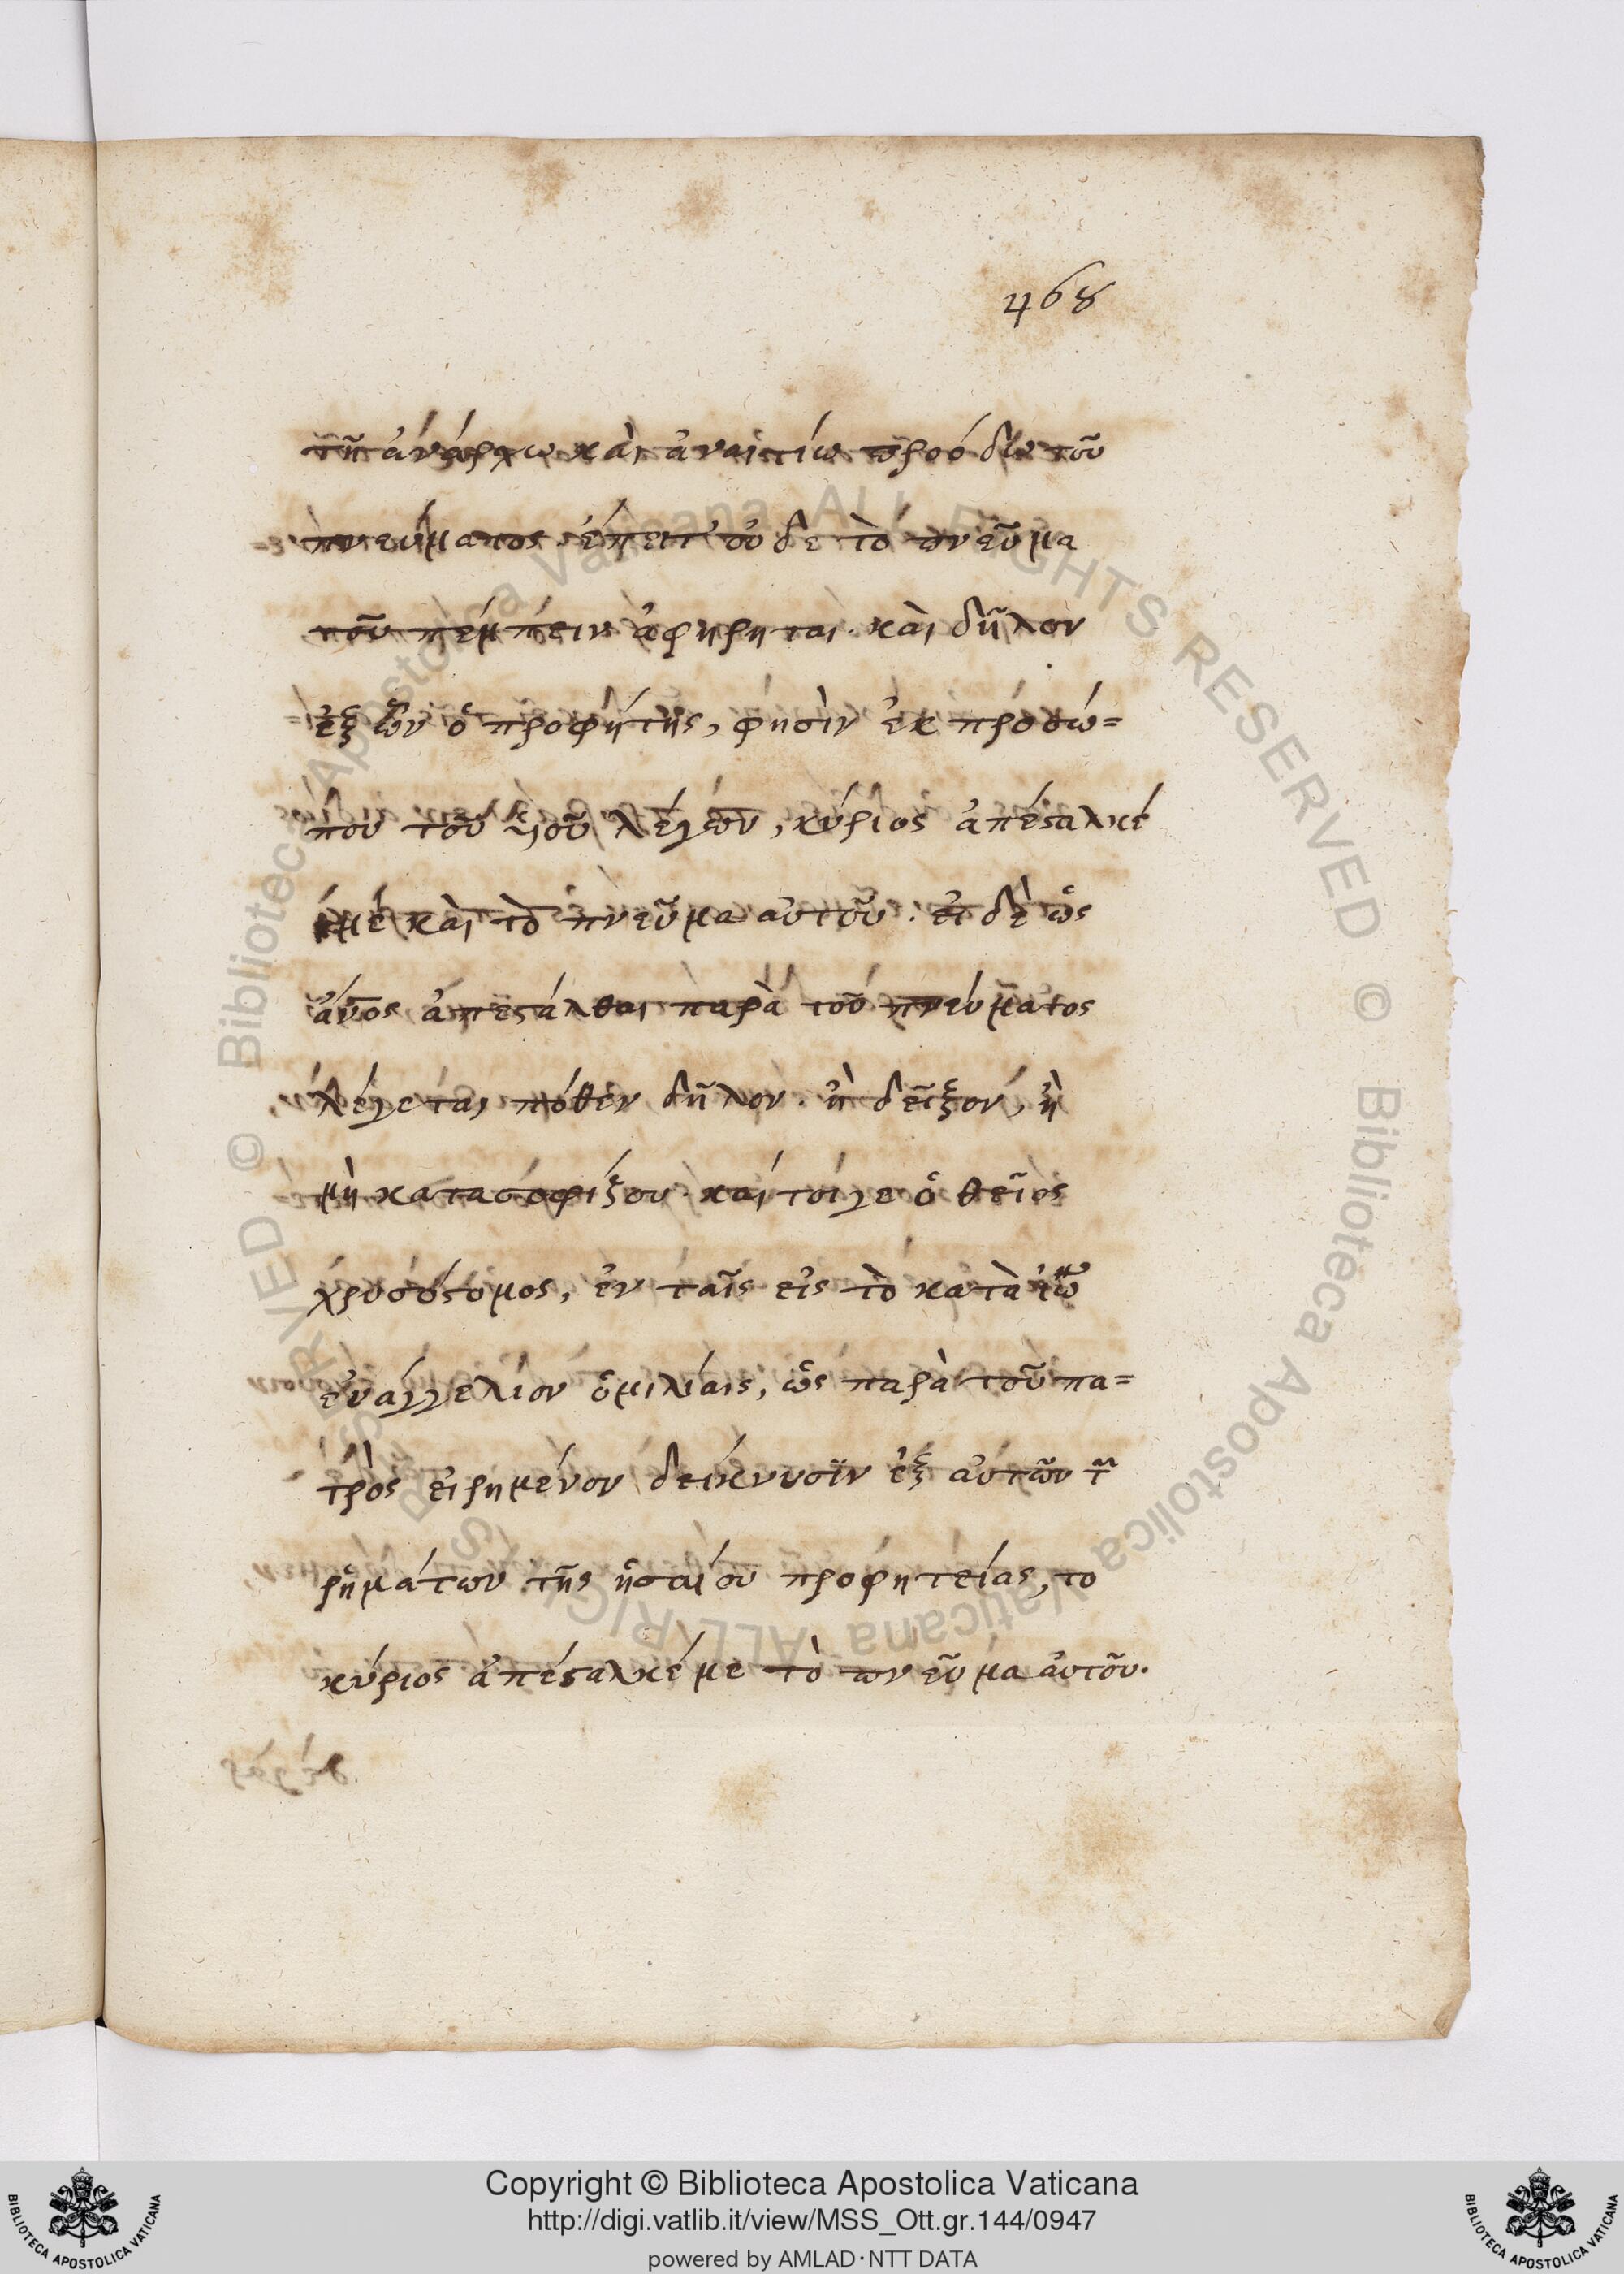 468
τῆ ἀνάρχω καὶ ἀναιτίω προόδω τοῦ
πνεύματος. ἐπεὶ οὐδὲ τὸ πνεῦμα
τοῦ πέμπειν ἀφήρηται. καὶ δῆλον
ἐξ ὧν ὁ προφήτης, φησὶν ἐκ προσώ=
που τοῦ λέγων, κύριος ἀπέσταλκέ
μὲ καὶ τὸ πνεῦμα αὐτοῦ. εἰ δὲ ὡς
ἄνος ἀπεστάλθαι παρὰ τοῦ πνεύματος
λέγεται πόθεν δῆλον. ἢ δεῖξον, ἢ
μὴ κατασοφίζου. καί τοιγε ὁ θεῖος
χρυσόστομος, ἐν ταῖς εἰς τὸ κατὰ ἰω
εὐαγγέλιον ὁμιλίαις, ὡς παρὰ τοῦ πα=
τρὸς εἰρημένον δείκνυσιν ἐξ αὐτῶν τ
ῥημάτων τῆς ἡσαίου προφητείας, το
κύριος ἀπέσταλκέ με τὸ πνεῦμα αὐτοῦ.
Copyright © Biblioteca Apostolica Vaticana
http://digi.vatlib.it/view/MSS_Ott.gr.144/0947
powered by AMLAD·NTT DATA
BIBLIOTECA APOSTOLICA VATICANA
BIBLIOTECA APOSTOLICA VATICANA
© Biblioteca Apostolica Vaticana ALL RIGHTS RESERVED
© Biblioteca Apostolica Vaticana ALL RIGHTS RESERVED